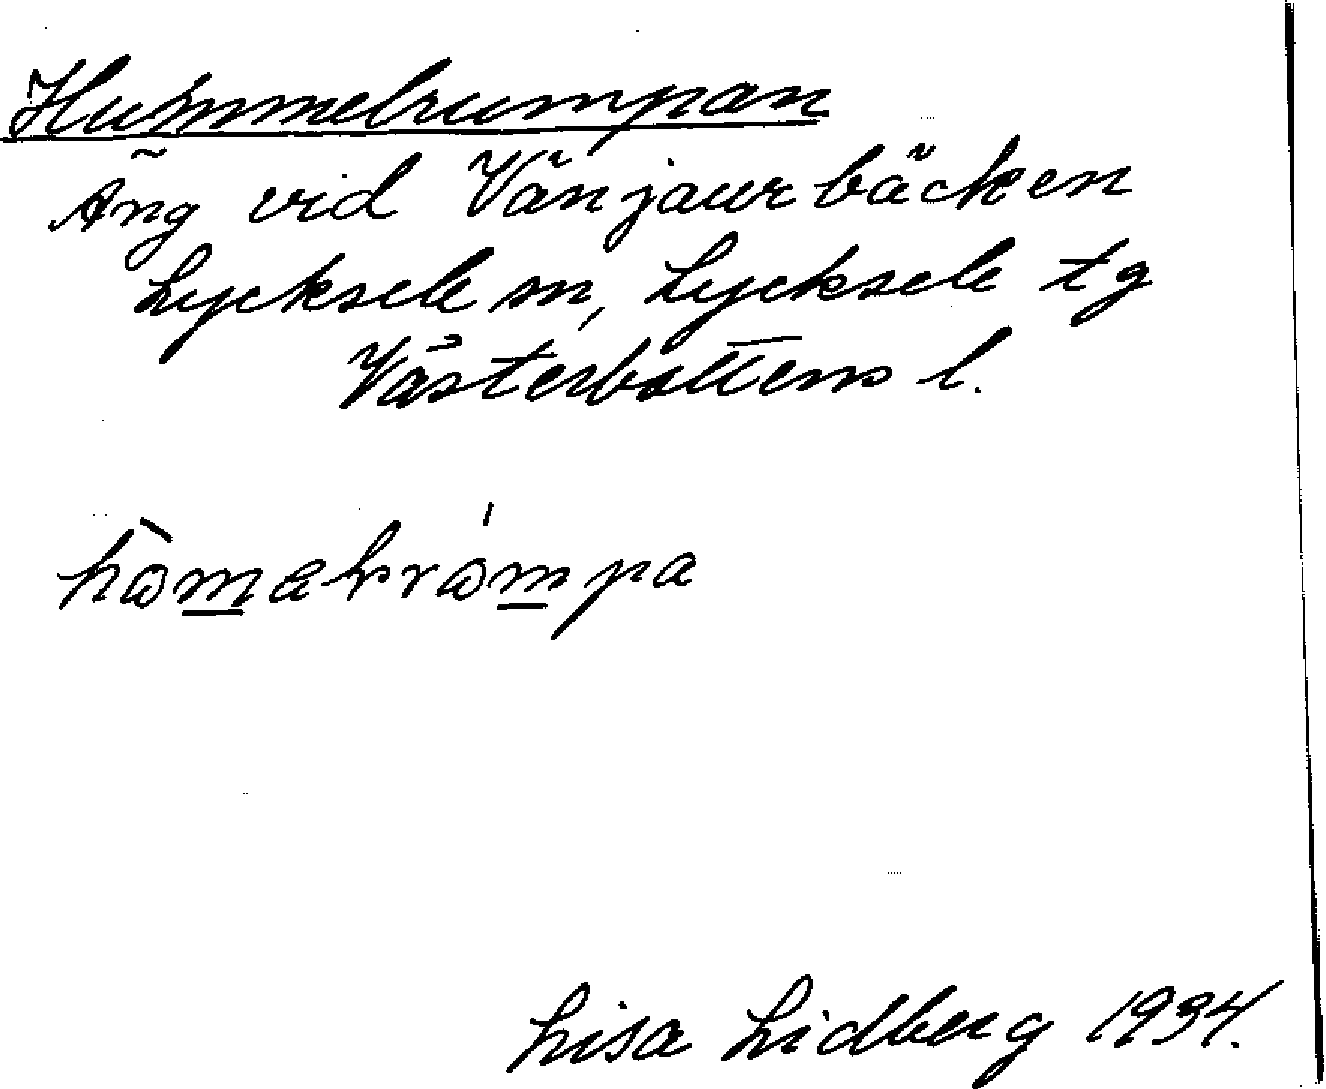 Hummelrumpan
Äng vid Vänjaurbäcken
Lycksele sn, Lycksele tg
Västerbottens l.
Lisa Lidberg 1934.